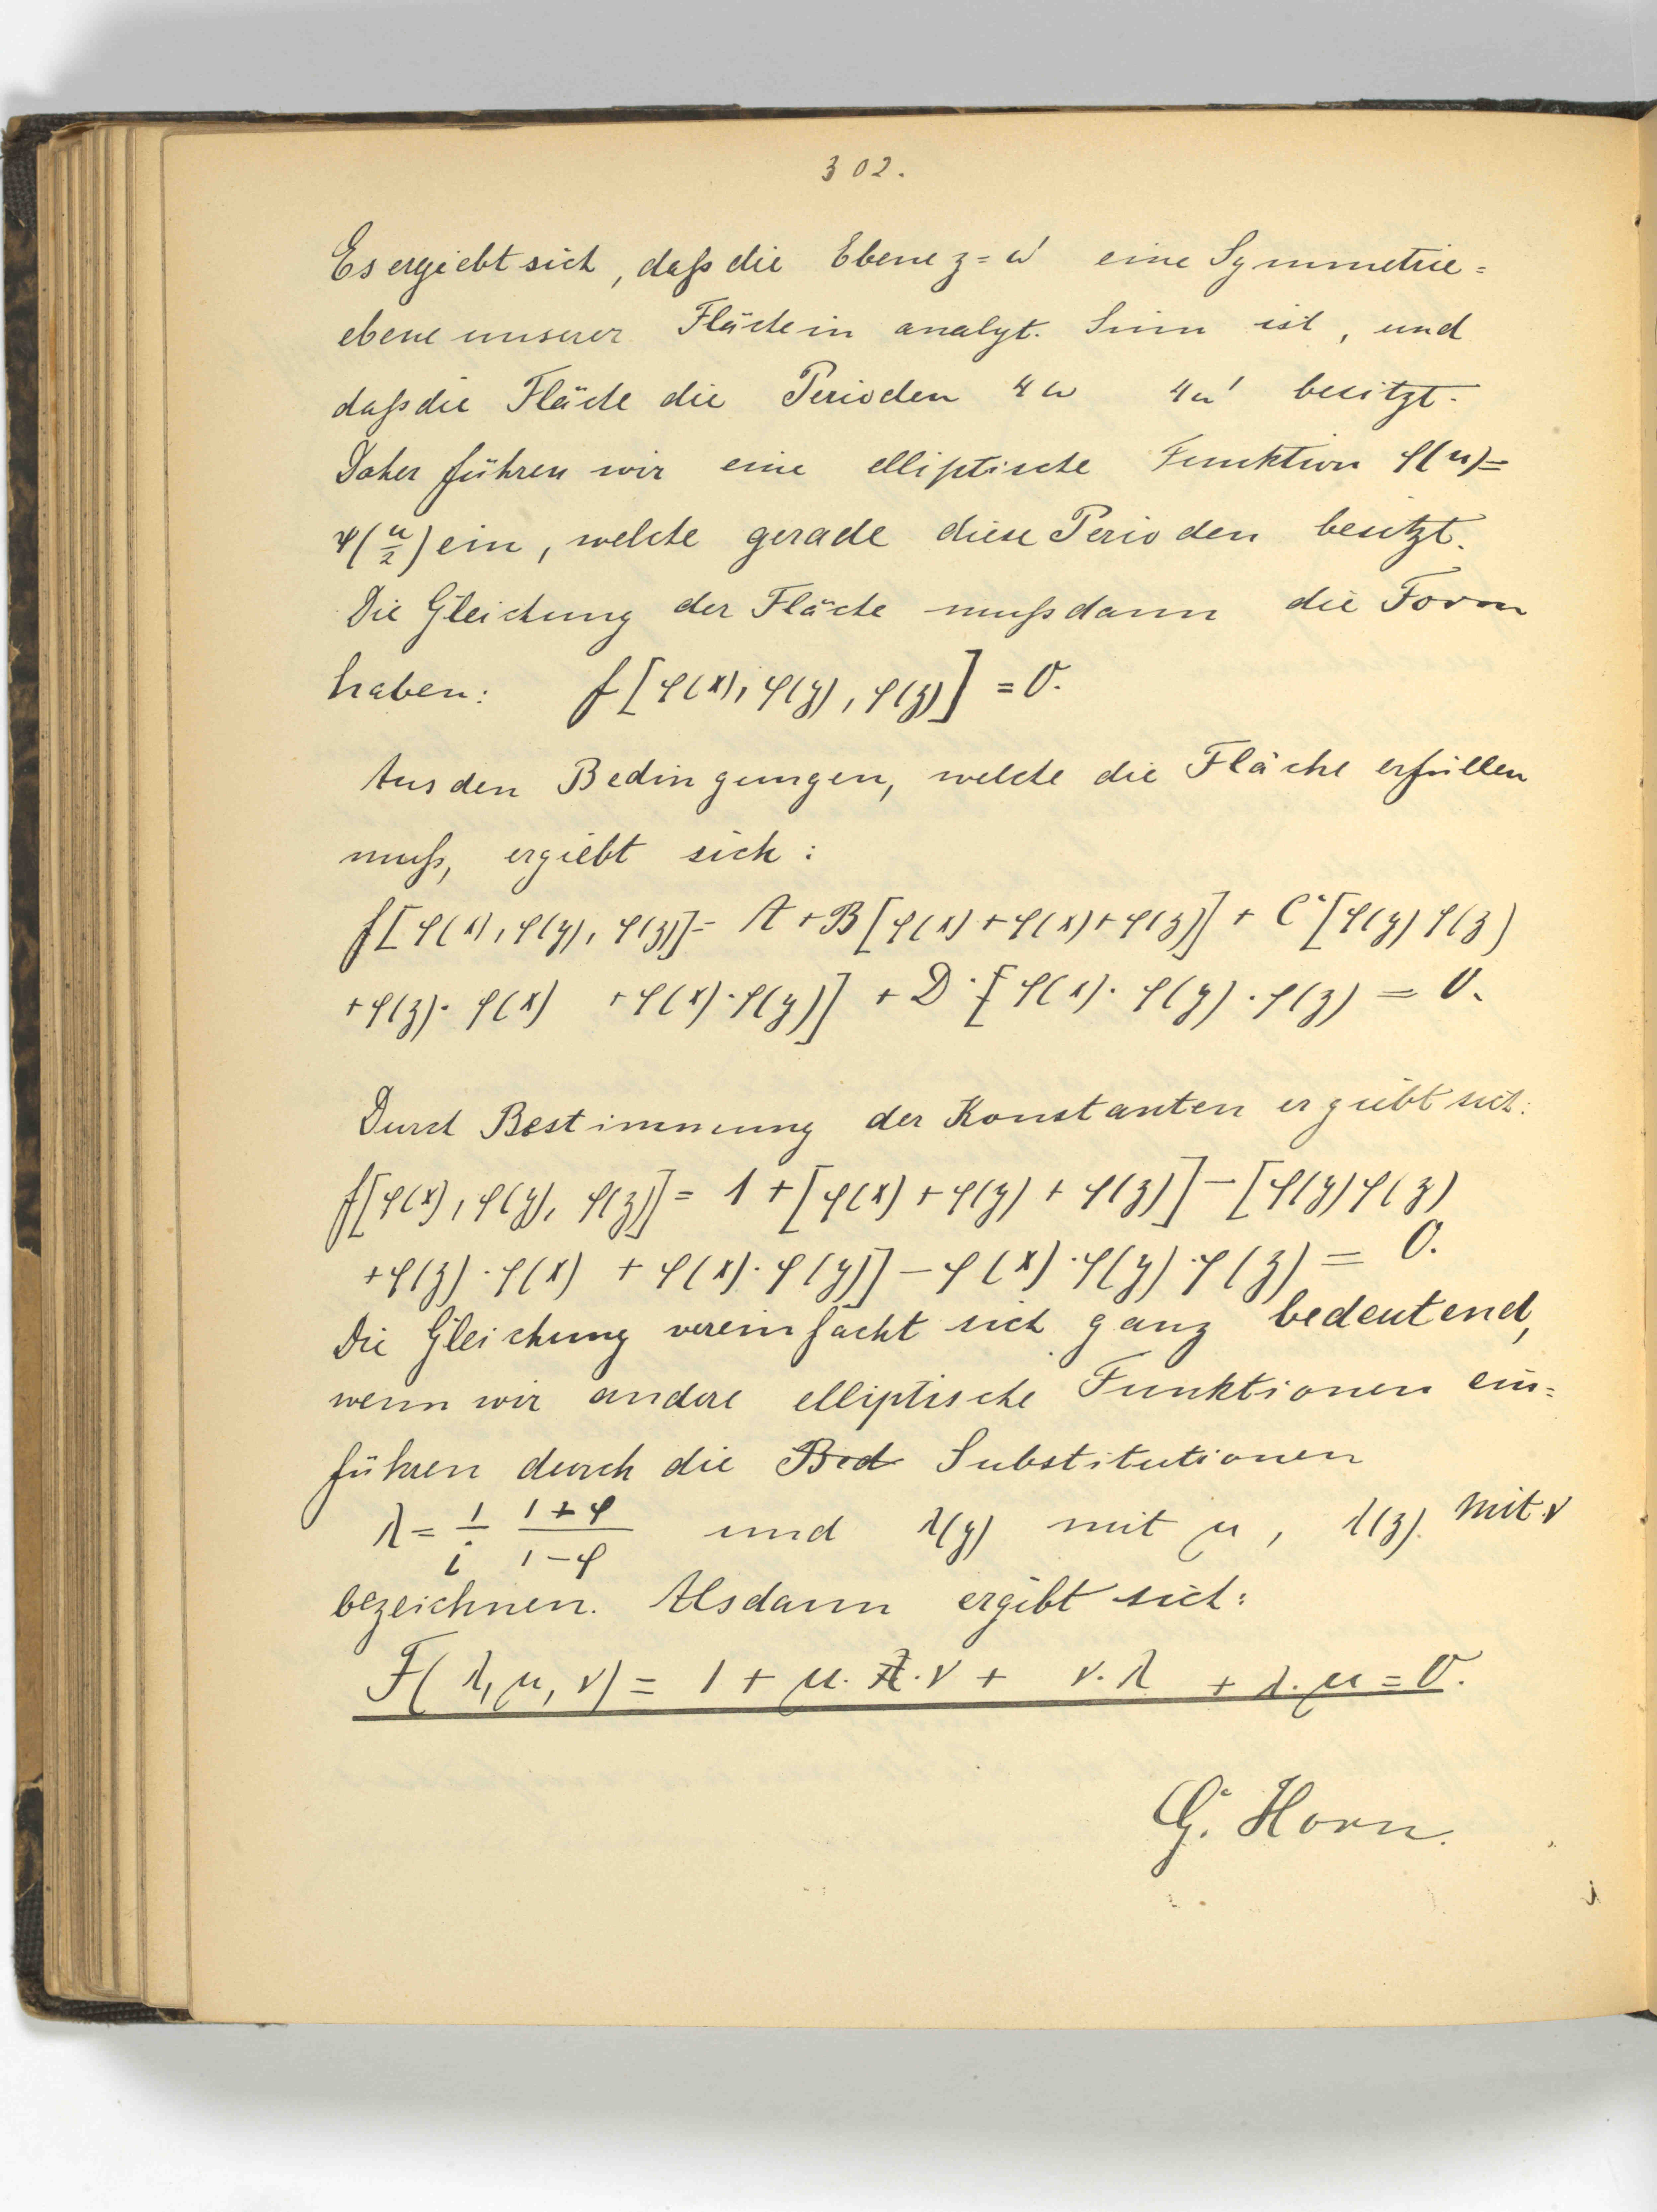 302.
Es ergiebt sich, daß die Ebene z = ω' eine Symmetrie=
ebene unserer Fläche in analyt. Sinn ist, und
daß die Fläche die Perioden 4ω 4ω' besitzt.
Daher führen wir eine elliptische Funktion φ(u)=
ψ(u/2) ein, welche gerade diese Perioden besitzt.
Die Gleichung der Fläche muß dann die Form
haben: f[φ(x), φ(y), φ(z)] = 0.
Aus den Bedingungen, welche die Fläche erfüllen
muß, ergiebt sich:
f[φ(x), φ(y), φ(z)] = A + B[φ(x) + φ(x) + φ(z)] + C·[φ(y) φ(z)
+ φ(z)· φ(x) + φ(x)·φ(y)] + D·[φ(x)· φ(y)·φ(z) = 0.
Durch Bestimmung der Konstanten ergiebt sich:
f[φ(x), φ(y), φ(z)] = 1 + [φ(x) + φ(y) + φ(z)] – [φ(y)φ(z)
+ φ(z)·φ(x) + φ(x)·φ(y)] – φ(x)·φ(y)·φ(z) = 0.
Die Gleichung vereinfacht sich ganz bedeutend,
wenn wir andere elliptische Funktionen ein=
führen durch die Bed Substitutionen
λ = 1/i (1+φ)/(1–φ) und λ(y) mit μ, λ(z) mit ν
bezeichnen. Alsdann ergibt sich:
F(λ, μ, ν) = 1 + μ·ν + ν·λ + λ·μ = 0.
G. Horn.